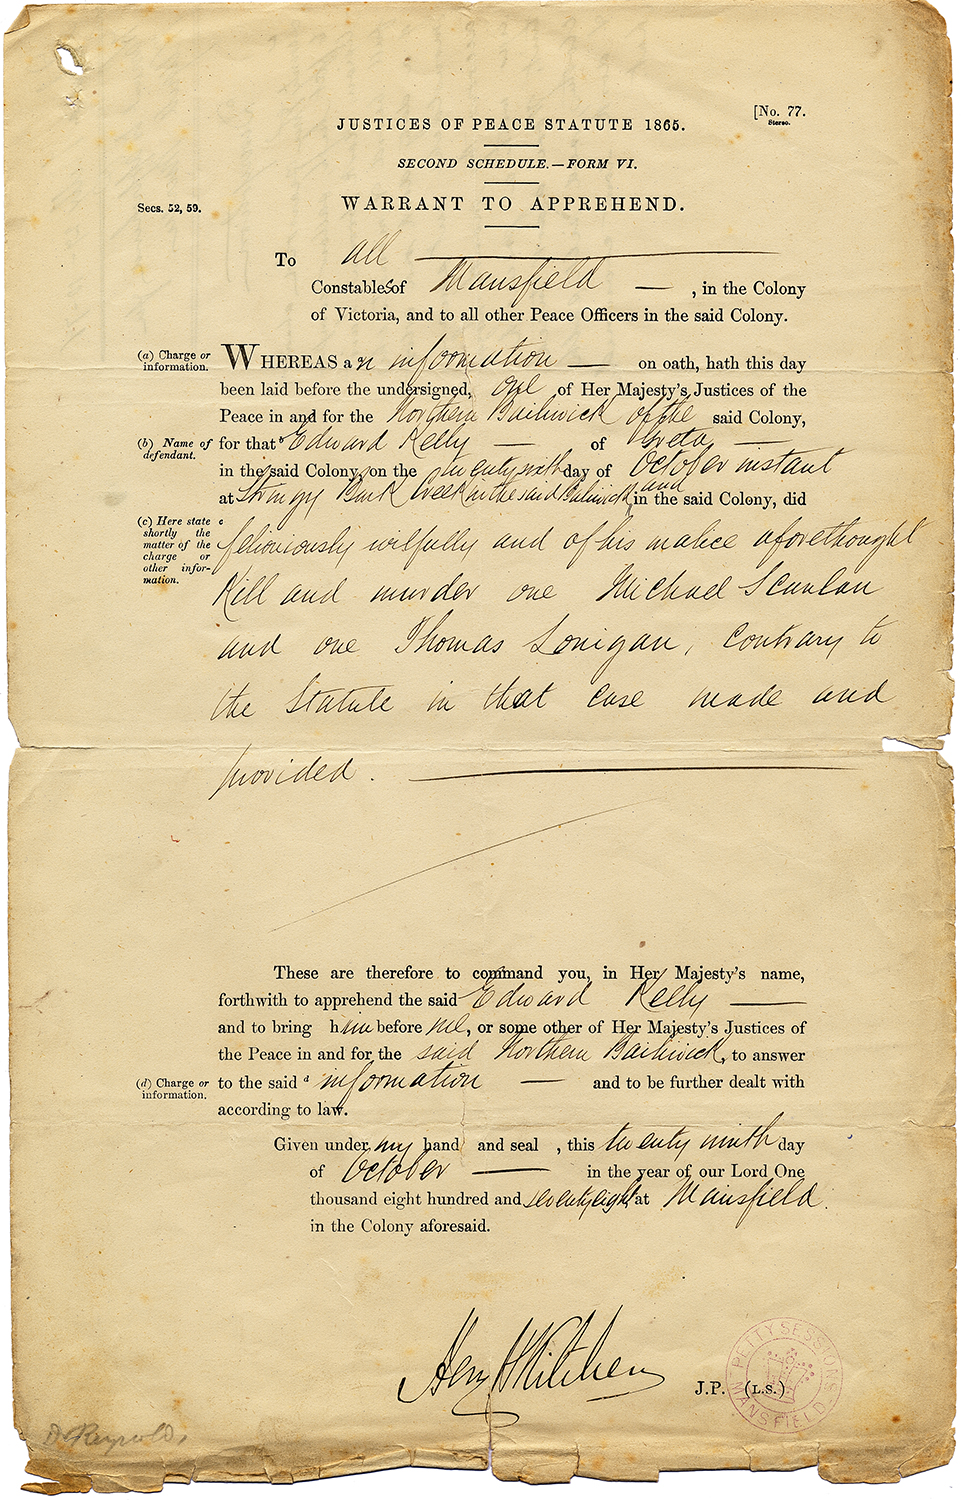 [No. 77.
Stereo.
JUSTICES OF PEACE STATUTE 1865.
SECOND SCHEDULE.—FORM VI.
Secs. 52, 59.
WARRANT TO APPREHEND.
To all
Constables of Mansfield — , in the Colony
of Victoria, and to all other Peace Officers in the said Colony.
(a) Charge or information.
WHEREAS an information — on oath, hath this day
been laid before the undersigned, one of Her Majesty's Justices of the
Peace in and for the Northern Bailiwick of the said Colony,
(b) Name of defendant.
for that b Edward Kelly — of Greta —
in the said Colony, on the twenty sixth day of October instant
at Stringy Bark Creek in the said Bailiwick and in the said Colony, did
(c) Here state shortly the matter of the charge or other infor-mation.
c feloniously wilfully and of his malice aforethought
Kill and murder one Michael Scanlan
and one Thomas Lonigan, contrary to
the Statute in that case made and
provided. —
These are therefore to command you, in Her Majesty's name,
forthwith to apprehend the said Edward Kelly —
and to bring him before me, or some other of Her Majesty's Justices of
the Peace in and for the said Northern Bailiwick, to answer
(d) Charge or information.
to the said d information — and to be further dealt with
according to law.
Given under my hand and seal , this twenty ninth day
of October — in the year of our Lord One
thousand eight hundred and seventy eight at Mansfield.
in the Colony aforesaid.
J.P. (L.S.)
PETTY SESSIONS
MANSFIELD